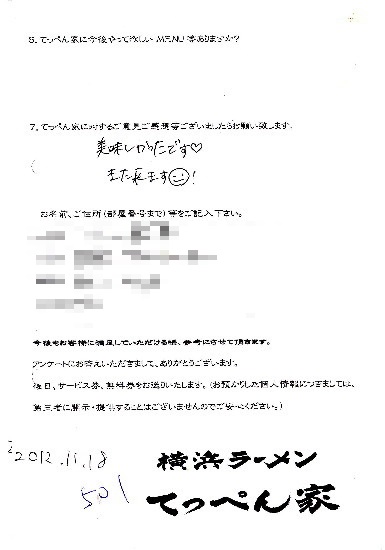 6．てっぺん家に今後やって欲しいMENU等ありますか？
7．てっぺん家に対するご意見ご感想等ございましたらお願い致します。
美味しかったです♡
また来ます☺!
お名前、ご住所（部屋番号まで）等をご記入下さい。
今後もお客様に満足していただける様、参考にさせて頂きます。
アンケートにお答えいただきまして、ありがとうございます。
後日、サービス券、無料券をお送りいたします。（お預かりした個人情報につきましては、
第三者に開示・提供することはございませんのでご安心ください。）
2012.11.18
501
横浜ラーメン
てっぺん家